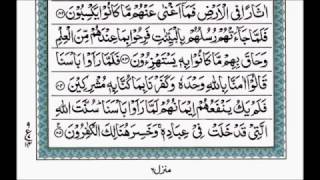 اٰثَارًا فِی الْاَرْضِ فَمَاۤ اَغْنٰی عَنْهُمْ مَّا كَانُوْا یَكْسِبُوْنَ ۝۸۲
فَلَمَّا جَآءَتْهُمْ رُسُلُهُمْ بِالْبَیِّنٰتِ فَرِحُوْا بِمَا عِنْدَهُمْ مِّنَ الْعِلْمِ
وَحَاقَ بِهِمْ مَّا كَانُوْا بِهٖ یَسْتَهْزِءُوْنَ ۝۸۳ فَلَمَّا رَاَوْا بَاْسَنَا
قَالُوْۤا اٰمَنَّا بِاللّٰهِ وَحْدَهٗ وَكَفَرْنَا بِمَا كُنَّا بِهٖ مُشْرِكِیْنَ ۝۸۴
فَلَمْ یَكُ یَنْفَعُهُمْ اِیْمَانُهُمْ لَمَّا رَاَوْا بَاْسَنَا سُنَّتَ اللّٰهِ
الَّتِیْ قَدْ خَلَتْ فِیْ عِبَادِهٖ وَخَسِرَ هُنَالِكَ الْكٰفِرُوْنَ ۝۸۵
منزل ۶